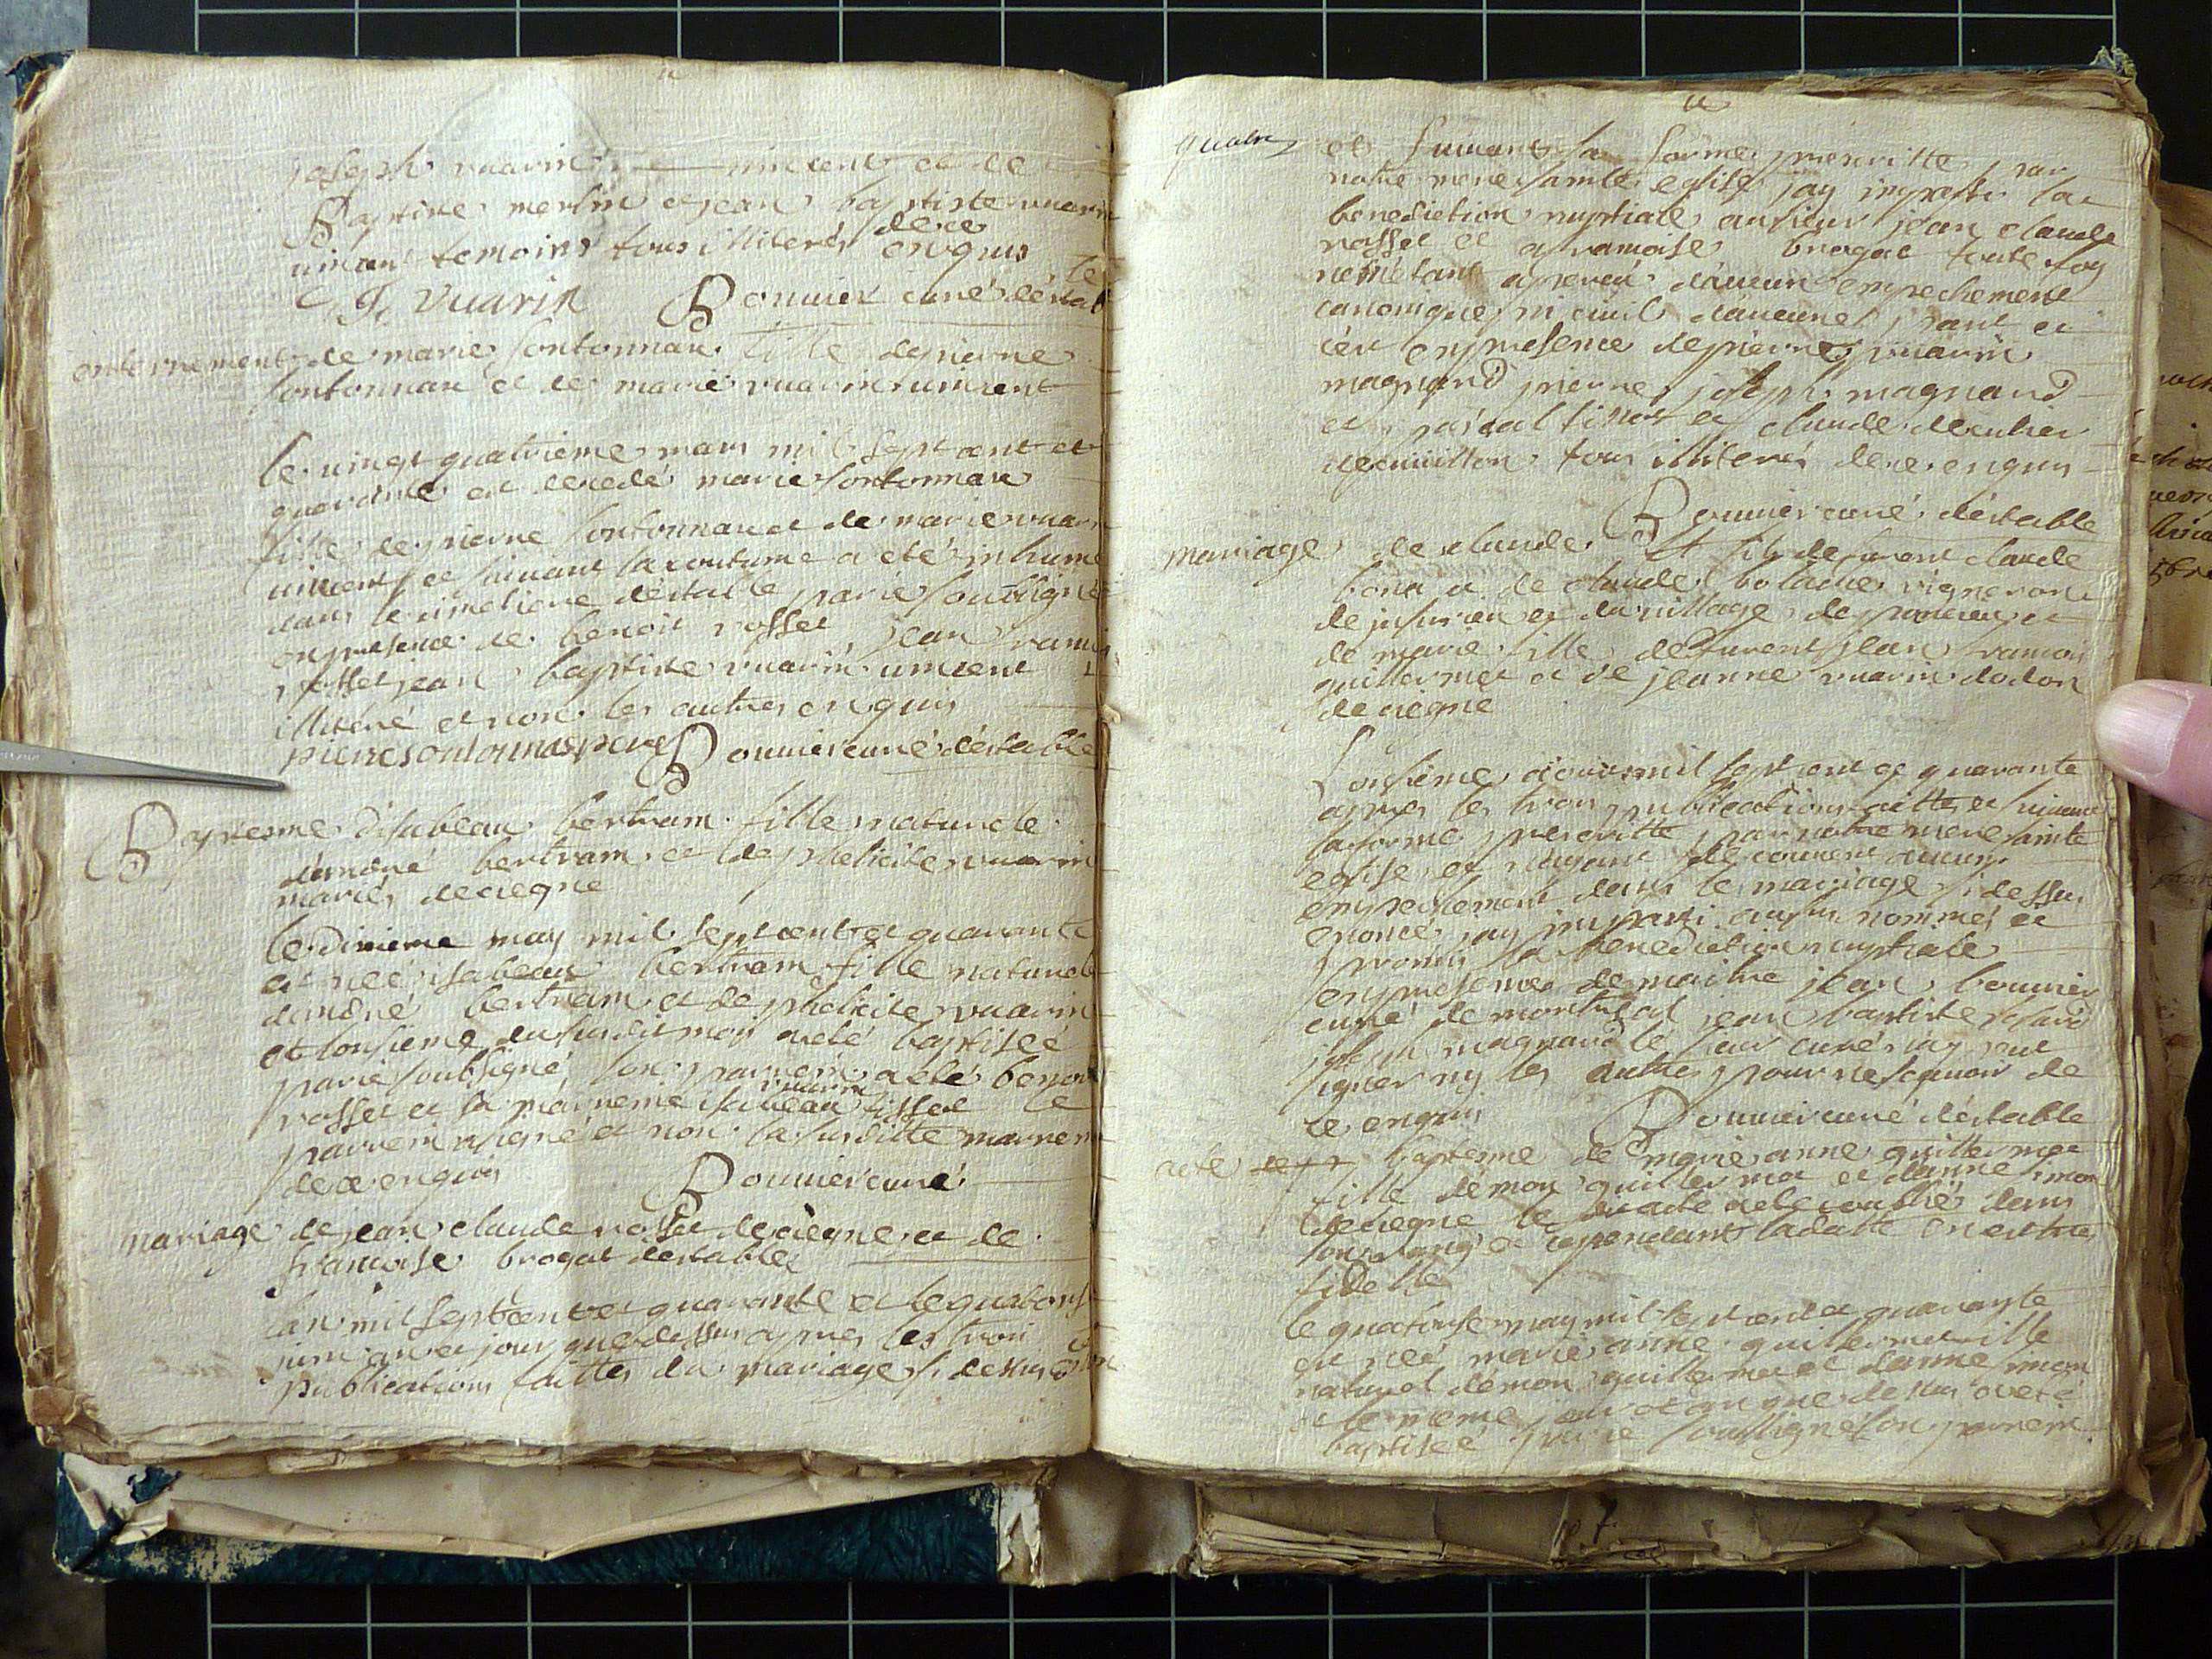 joseph vuarin vincent et de
Baptiste merlin et jean baptiste vuarin
vincent temoins tous illiterés de ce enquis
J. Vuarin Bouvier curé déstable
enterrement de marie sontonnax fille de pierre
sontonnax et de marie vuarin vincent
le vingt quatrieme mars mil sept cent et
quarante est decedé marie sontonnax
fille de pierre sontonnax et de marie vuarin
vincent et suivant la coutume a eté inhumé
dans le cimetiere déstable par le soubsigné
en presence de benoit rosset jean francois
rosset jean baptiste vuarin vincent
illiteré et non les autres enquis
pierre sontonnas pere Bouvier curé déstable
Baptesme disabeau bertram fille naturele
d'andré bertram et de phelicite vuarin
mariés de ciegne
le dixieme may mil sept cent et quarante
est neé isabeau bertram fille naturele
d'andré bertram et de phelicite vuarin
et lonsieme du susdit mois a eté baptiseé
par le soubsigné son parrein a eté benoit
rosset et sa marreine isabeau vuarin tisset le
parrein signé et non la susditte marreine
de ce enquis Bouvier curé
mariage de jean claude rosset de ciegne et de
francoise brogat déstable
lan mil sept cent et quarante et le quatorse
juin an et jour que dessus apres les trois
publications faittes du mariage si dessus
quatre
et suivant la forme prescritte par
notre mere sainte eglise jay imparti la
benediction nuptiale au sieur jean claude
rosset et a francoise brogat toute foy
ne métant aperceu d'aucun empechement
canonique ni civil d'aucune part et
cest en presence de pierre vuarin
magnand pierre joseph magnand
et pascal tinot et claude decutier
de tous illiterés de ce enquis
Bouvier curé déstable
mariage de claude fils de furent claude
bona et de claude vigneron
de jusurieu et du village de poncieu et
de marie fille de furent jean francois
guillermet et de jeanne vuarin dodon
de ciegne
Lonsieme d'aoust mil sept cent et quarante
apres les trois publications faittes et suivant
la forme prescritte par notre mere sainte
eglise et nayant decouvert aucun
empechement dans le mariage si dessus
enoncé jay imparti aux sus nommés et
promis la benediction nuptiale
en presence de maitre jean bouvier
curé de jean baptiste
joseph magnand le sieur curé
signer ny les autres pour ne scavoir de
ce enquis Bouvier curé déstable
acte baptesme de marie anne guillermet
fille demon guillermet et danne simon
de ciegne le acte a eté oublié dans
son rang et cependant la datte en est tres
fidelle
le quatorse may mil sept cent et quarante
est neé marie anne guillermet fille
naturel demon guillermet et danne simon
et le meme jour et an que dessus a eté
baptiseé par le soubsigné son parrein